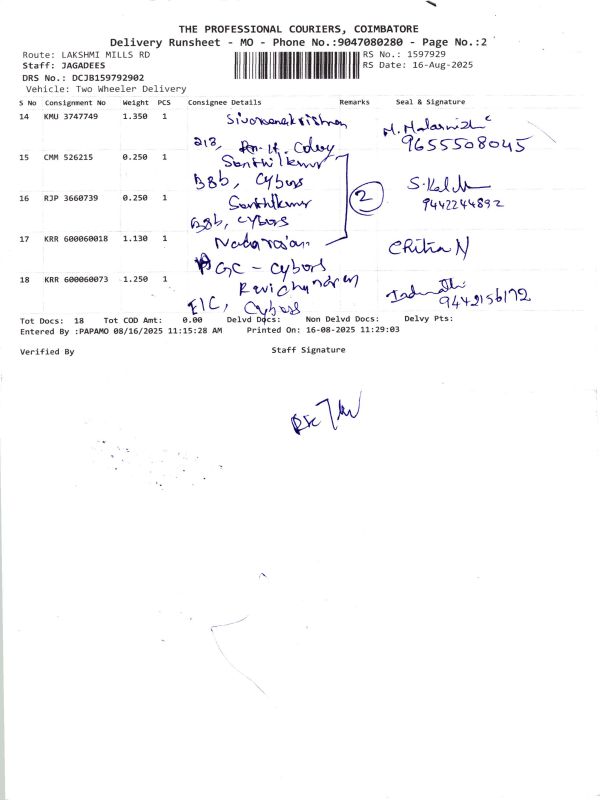 THE PROFESSIONAL COURIERS, COIMBATORE
Delivery Runsheet - MO - Phone No.:9047080280 - Page No.:2
Route: LAKSHMI MILLS RD RS No.: 1597929
Staff: JAGADEES RS Date: 16-Aug-2025
DRS No.: DCJB159792902
Vehicle: Two Wheeler Delivery
S No Consignment No Weight PCS Consignee Details Remarks Seal & Signature
14 KMU 3747749 1.350 1
213, 9655508045
15 CMM 526215 0.250 1 Santhilkumr
B8b, Cybers
16 RJP 3660739 0.250 1 Santhilkumr 2 9442244892
B8b, Cybers
17 KRR 600060018 1.130 1 Nadarajan Chitra N
GC - Cybers
18 KRR 600060073 1.250 1
E1C, Cybers 9442156172
Tot Docs: 18 Tot COD Amt: 0.00 Delvd Docs: Non Delvd Docs: Delvy Pts:
Entered By :PAPAMO 08/16/2025 11:15:28 AM Printed On: 16-08-2025 11:29:03
Verified By Staff Signature